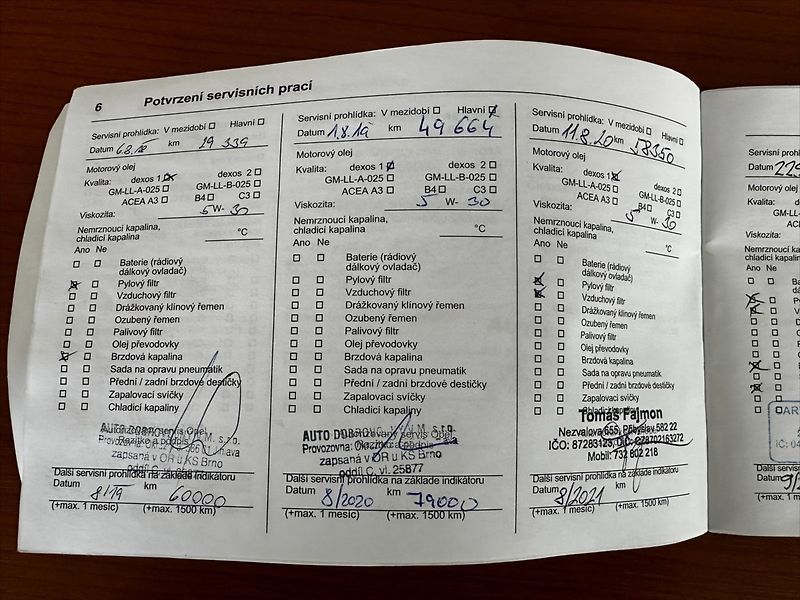 6 Potvrzení servisních prací
Servisní prohlídka: V mezidobí Hlavní
Datum 6.8.18 km 29 339
Motorový olej
Kvalita: dexos 1 dexos 2
GM-LL-A-025 GM-LL-B-025
ACEA A3 B4 C3
Viskozita: 5 W- 30
Nemrznoucí kapalina,
chladicí kapalina °C
Ano Ne
Baterie (rádiový
dálkový ovladač)
Pylový filtr
Vzduchový filtr
Drážkovaný klínový řemen
Ozubený řemen
Palivový filtr
Olej převodovky
Brzdová kapalina
Sada na opravu pneumatik
Přední / zadní brzdové destičky
Zapalovací svíčky
Chladicí kapaliny
AUTO DOBROVOLNÝ M. s.r.o.
zapsaná v OR u KS Brno
oddíl C, vl. 25877
Další servisní prohlídka na základe indikátoru
Datum 8/19 km 60000
(+max. 1 mesíc) (+max. 1500 km)
Servisní prohlídka: V mezidobí Hlavní
Datum 1.8.19 km 49 664
Motorový olej
Kvalita: dexos 1 dexos 2
GM-LL-A-025 GM-LL-B-025
ACEA A3 B4 C3
Viskozita: 5 W- 30
Nemrznoucí kapalina,
chladicí kapalina °C
Ano Ne
Baterie (rádiový
dálkový ovladač)
Pylový filtr
Vzduchový filtr
Drážkovaný klínový řemen
Ozubený řemen
Palivový filtr
Olej převodovky
Brzdová kapalina
Sada na opravu pneumatik
Přední / zadní brzdové destičky
Zapalovací svíčky
Chladicí kapaliny
AUTO DOBROVOLNÝ M. s.r.o.
Provozovna:
zapsaná v OR u KS Brno
oddíl C, vl. 25877
Další servisní prohlídka na základe indikátoru
Datum 8/2020 km 79000
(+max. 1 mesíc) (+max. 1500 km)
Servisní prohlídka: V mezidobí Hlavní
Datum 11.8.20 km 58350
Motorový olej
Kvalita: dexos 1 dexos 2
GM-LL-A-025 GM-LL-B-025
ACEA A3 B4 C3
Viskozita: 5 W- 30
Nemrznoucí kapalina,
chladicí kapalina °C
Ano Ne
Baterie (rádiový
dálkový ovladač)
Pylový filtr
Vzduchový filtr
Drážkovaný klínový řemen
Ozubený řemen
Palivový filtr
Olej převodovky
Brzdová kapalina
Sada na opravu pneumatik
Přední / zadní brzdové destičky
Zapalovací svíčky
Tomáš Pajmon
Nezvalova 655, Přibyslav 582 22
IČO: 87283123, DIČ:
Mobil: 732 802 218
Další servisní prohlídka na základe indikátoru
Datum 8/2021 km
(+max. 1 mesíc) (+max. 1500 km)
Servisní
Datum
Motorový olej
Kvalita:
Viskozita:
Nemrznoucí
chladicí
Ano Ne
Další
Datum
(+max.